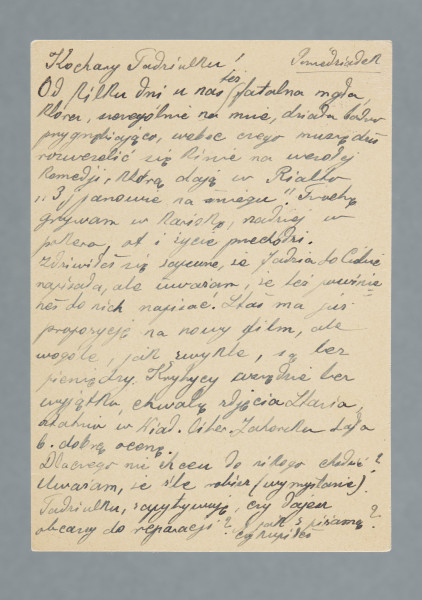 Kochany Tadziulku! Poniedziałek
Od kilku dni u nas też fatalna mgła,
która, szczególnie na mnie, działa bardzo
przygnębiająco, wobec czego muszę dziś
rozweselić się kinie na wesołej
komedji, którą dają w Rialto
„3 panowie na śniegu". Trochę
grywam w kariokę, rzadziej w
pokera, ot i życie przechodzi.
Zdziwiłeś się zapewne, że Jadzia do Ciebie
napisała, ale uważam, że też powinie-
neś do nich napisać. Staś ma już
propozycję na nowy film, ale
wogóle, jak zwykle, są bez
pieniędzy. Krytycy wszędzie bez
wyjątku chwalą zdjęcia Stasia,
ostatnio w Wiad. Liter. Zahorska dała
b. dobrą ocenę.
Dlaczego nie chcesz do nikogo chodzić?
Uważam, że źle robisz (wymyślanie).
Tadziulku, zapytywują, czy dałeś
obcasy do reparacji? i jak z piżamą?
czy kupiłeś